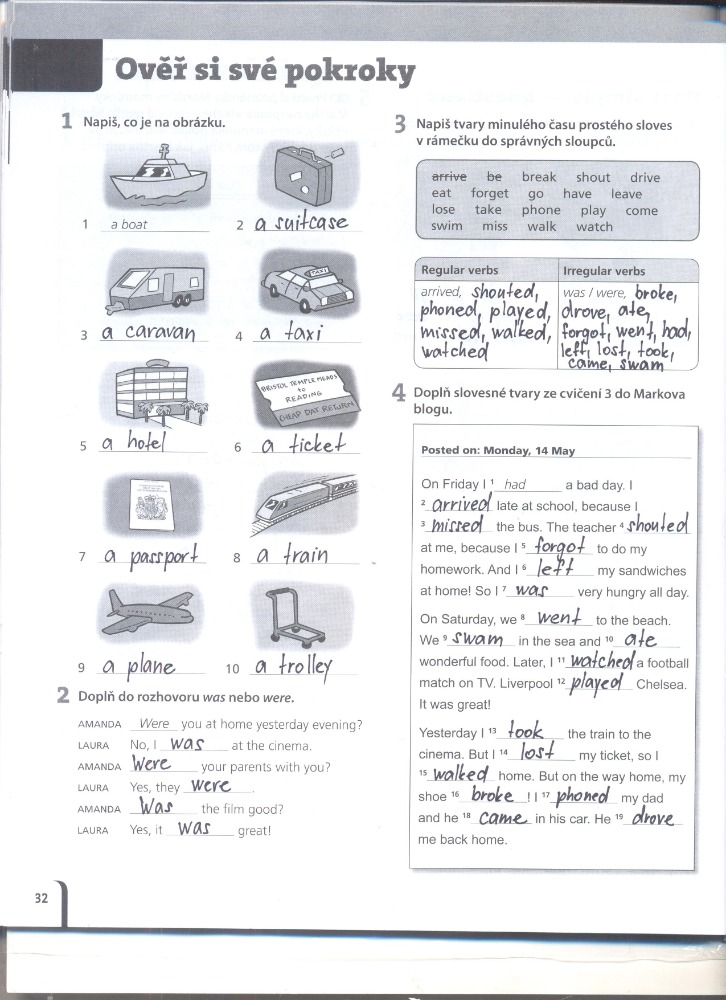 Ověř si své pokroky
1 Napiš, co je na obrázku.
1 a boat
2 a suitcase
3 a caravan
TAXI
4 a taxi
5 a hotel
BRISTOL TEMPLE MEADS
to
READING
CHEAP DAY RETURN
6 a ticket
7 a passport
8 a train
9 a plane
10 a trolley
2 Doplň do rozhovoru was nebo were.
AMANDA Were you at home yesterday evening?
LAURA No, I was at the cinema.
AMANDA Were your parents with you?
LAURA Yes, they were.
AMANDA Was the film good?
LAURA Yes, it was great!
3 Napiš tvary minulého času prostého sloves
v rámečku do správných sloupců.
arrive be break shout drive
eat forget go have leave
lose take phone play come
swim miss walk watch
Regular verbs
arrived, shouted,
phoned, played,
missed, walked,
watched
Irregular verbs
was / were, broke,
drove, ate,
forgot, went, had,
left, lost, took,
came, swam
4 Doplň slovesné tvary ze cvičení 3 do Markova
blogu.
Posted on: Monday, 14 May
On Friday I 1 had a bad day. I
2 arrived late at school, because I
3 missed the bus. The teacher 4 shouted
at me, because I 5 forgot to do my
homework. And I 6 left my sandwiches
at home! So I 7 was very hungry all day.
On Saturday, we 8 went to the beach.
We 9 swam in the sea and 10 ate
wonderful food. Later, I 11 watched a football
match on TV. Liverpool 12 played Chelsea.
It was great!
Yesterday I 13 took the train to the
cinema. But I 14 lost my ticket, so I
15 walked home. But on the way home, my
shoe 16 broke! I 17 phoned my dad
and he 18 came in his car. He 19 drove
me back home.
32